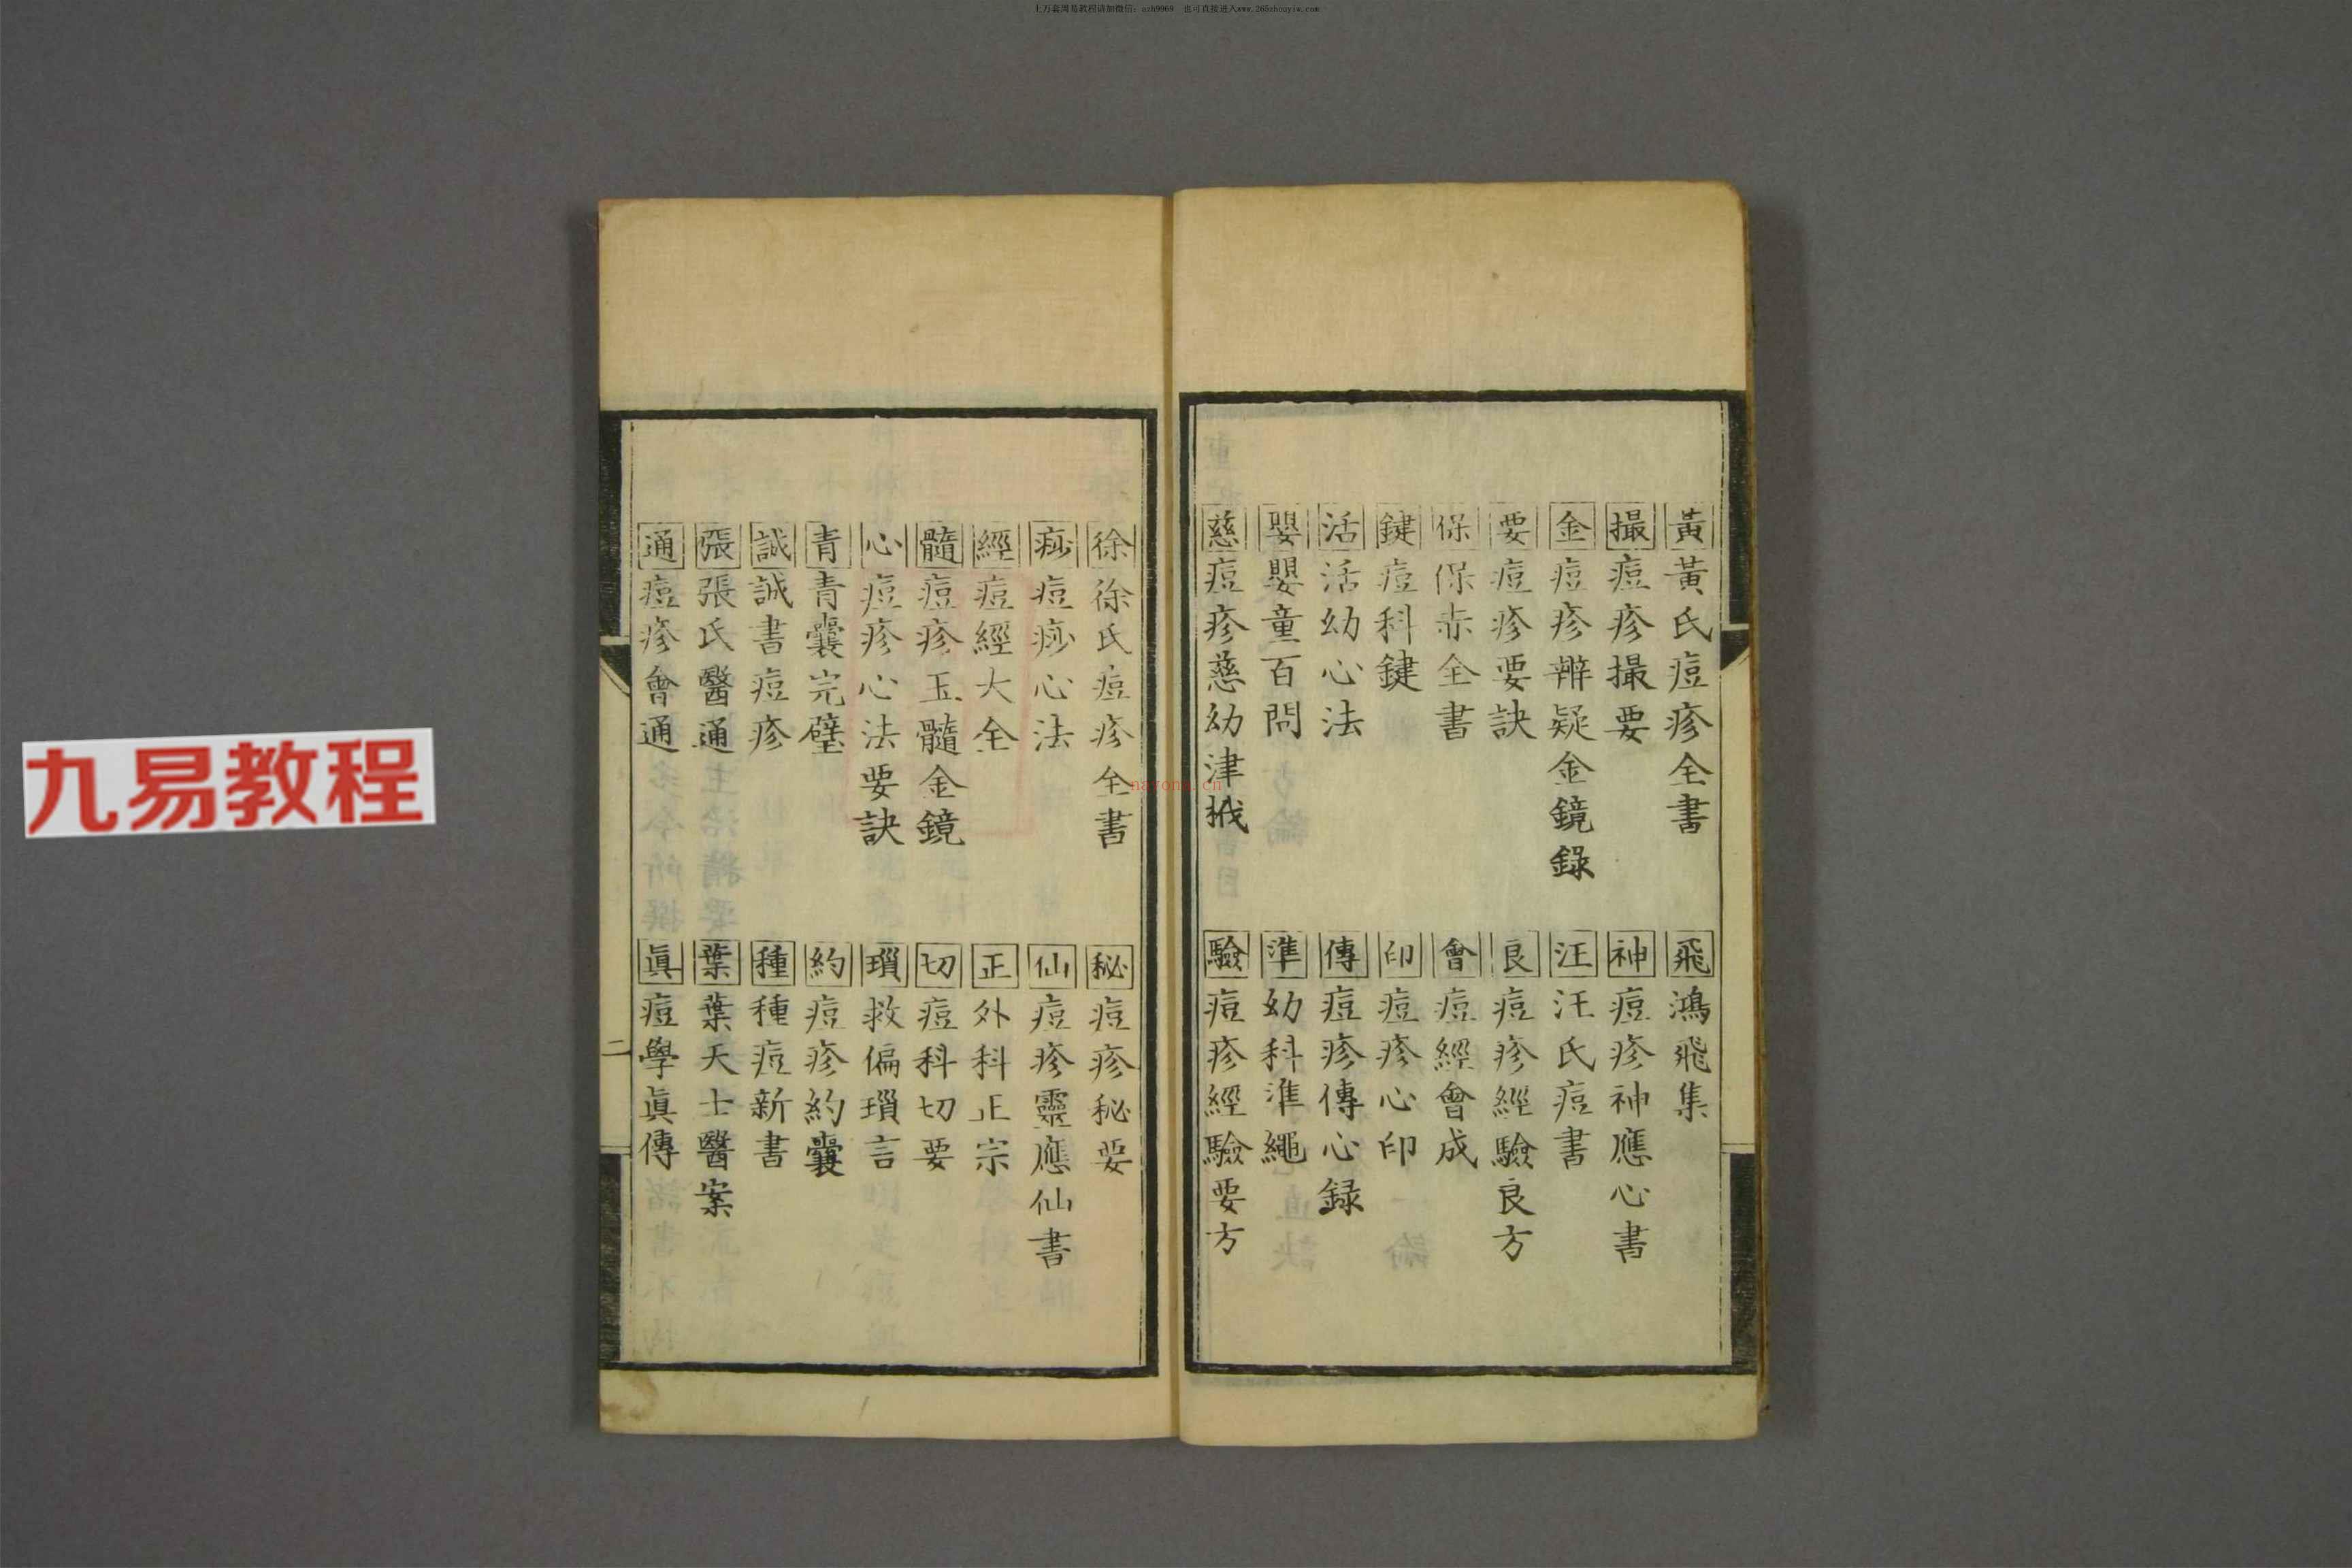 上万套周易教程请加微信：azh9969　也可直接进入www.265zhouyiw.com
黃 黃氏痘疹全書
飛 鴻飛集
撮 痘疹撮要
神 痘疹神應心書
金 痘疹辨疑金鏡錄
汪 汪氏痘書
要 痘疹要訣
良 痘疹經驗良方
保 保赤全書
會 痘經會成
鍵 痘科鍵
印 痘疹心印
活 活幼心法
傳 痘疹傳心録
嬰 嬰童百問
準 幼科準繩
慈 痘疹慈幼津
驗 痘疹經驗要方
徐 徐氏痘疹全書
秘 痘疹秘要
痧 痘痧心法
仙 痘疹靈應仙書
經 痘經大全
正 外科正宗
髓 痘疹玉髓金鏡
切 痘科切要
心 痘疹心法要訣
瑣 救偏瑣言
青 青囊完璧
約 痘疹約囊
誠 誠書痘疹
種 種痘新書
張 張氏醫通
葉 葉天士醫案
通 痘疹會通
眞 痘學眞傳
二
九易教程
nayona.cn